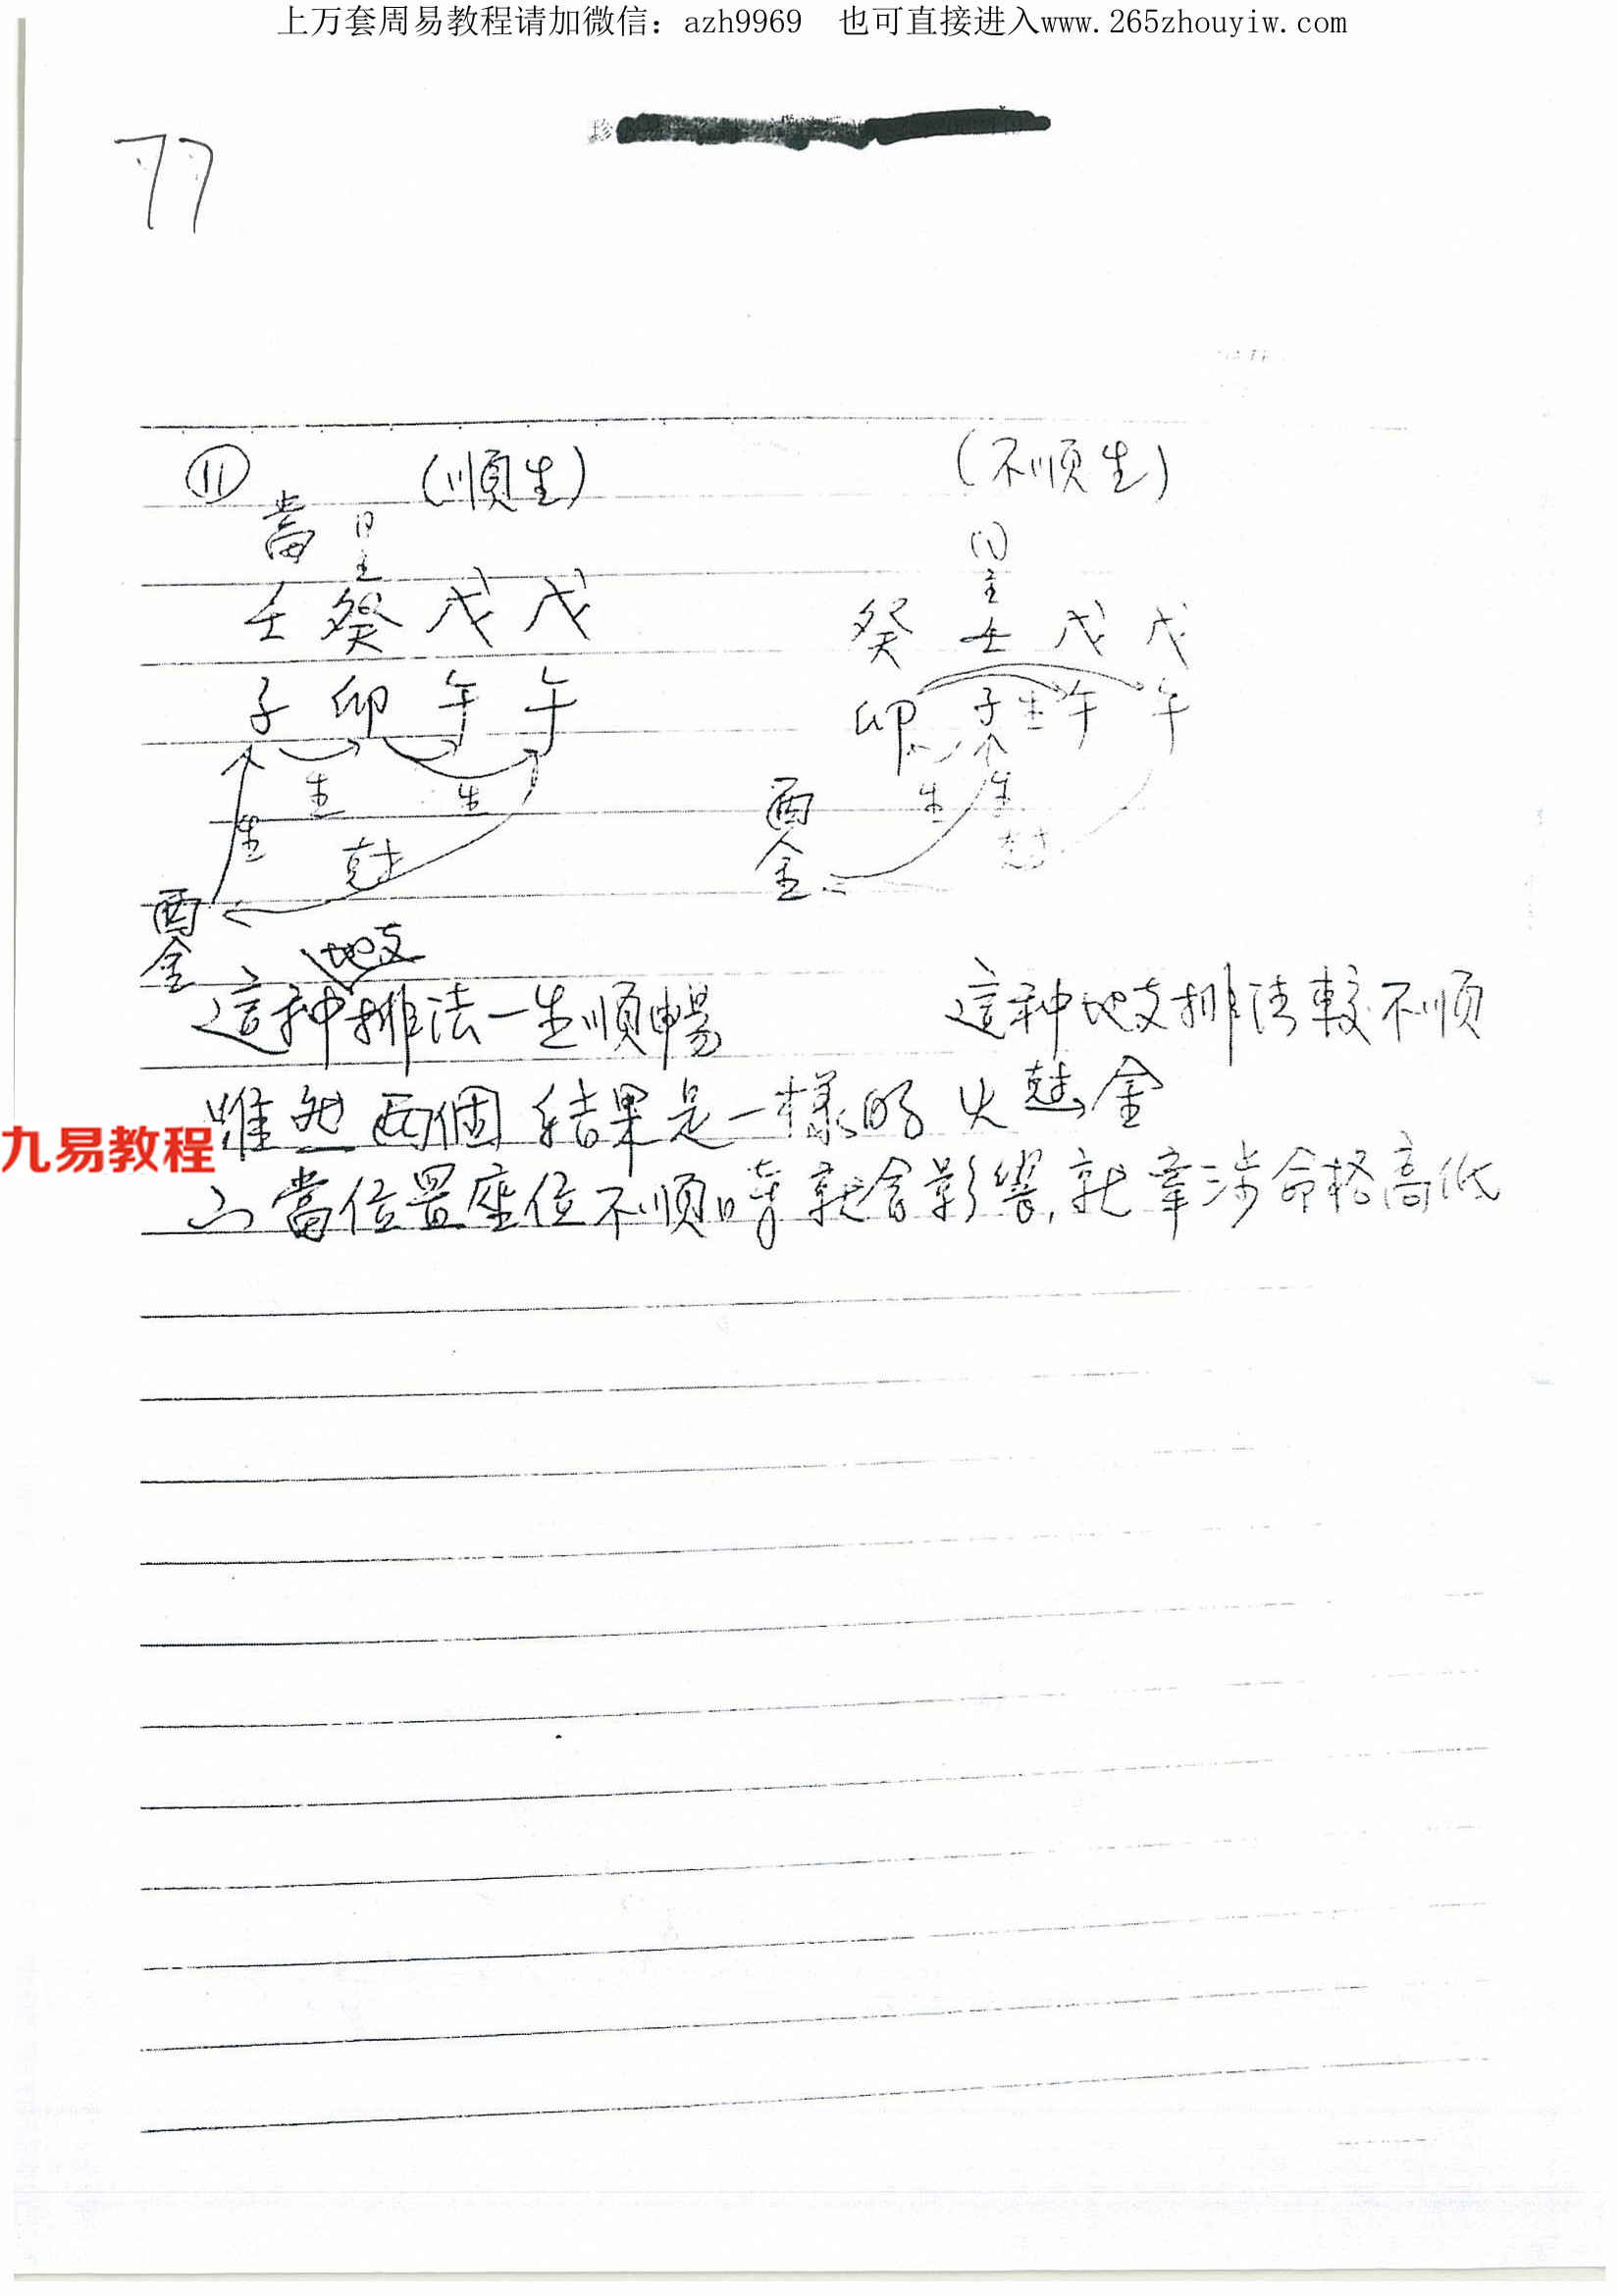 上万套周易教程请加微信：azh9969 也可直接进入www.265zhouyiw.com
77
⑪ (順生) (不順生)
當 日主 日主
壬 癸 戊 戊 癸 壬 戊 戊
子 卯 午 午 卯 子 生 午 午
生 生 生 生
生 尅 尅
酉金 酉金
地支
這种排法一生順暢 這种地支排法較不順
雖然兩個結果是一樣的 火尅金
九易教程
當位置座位不順時就會影響,就牽涉命格高低